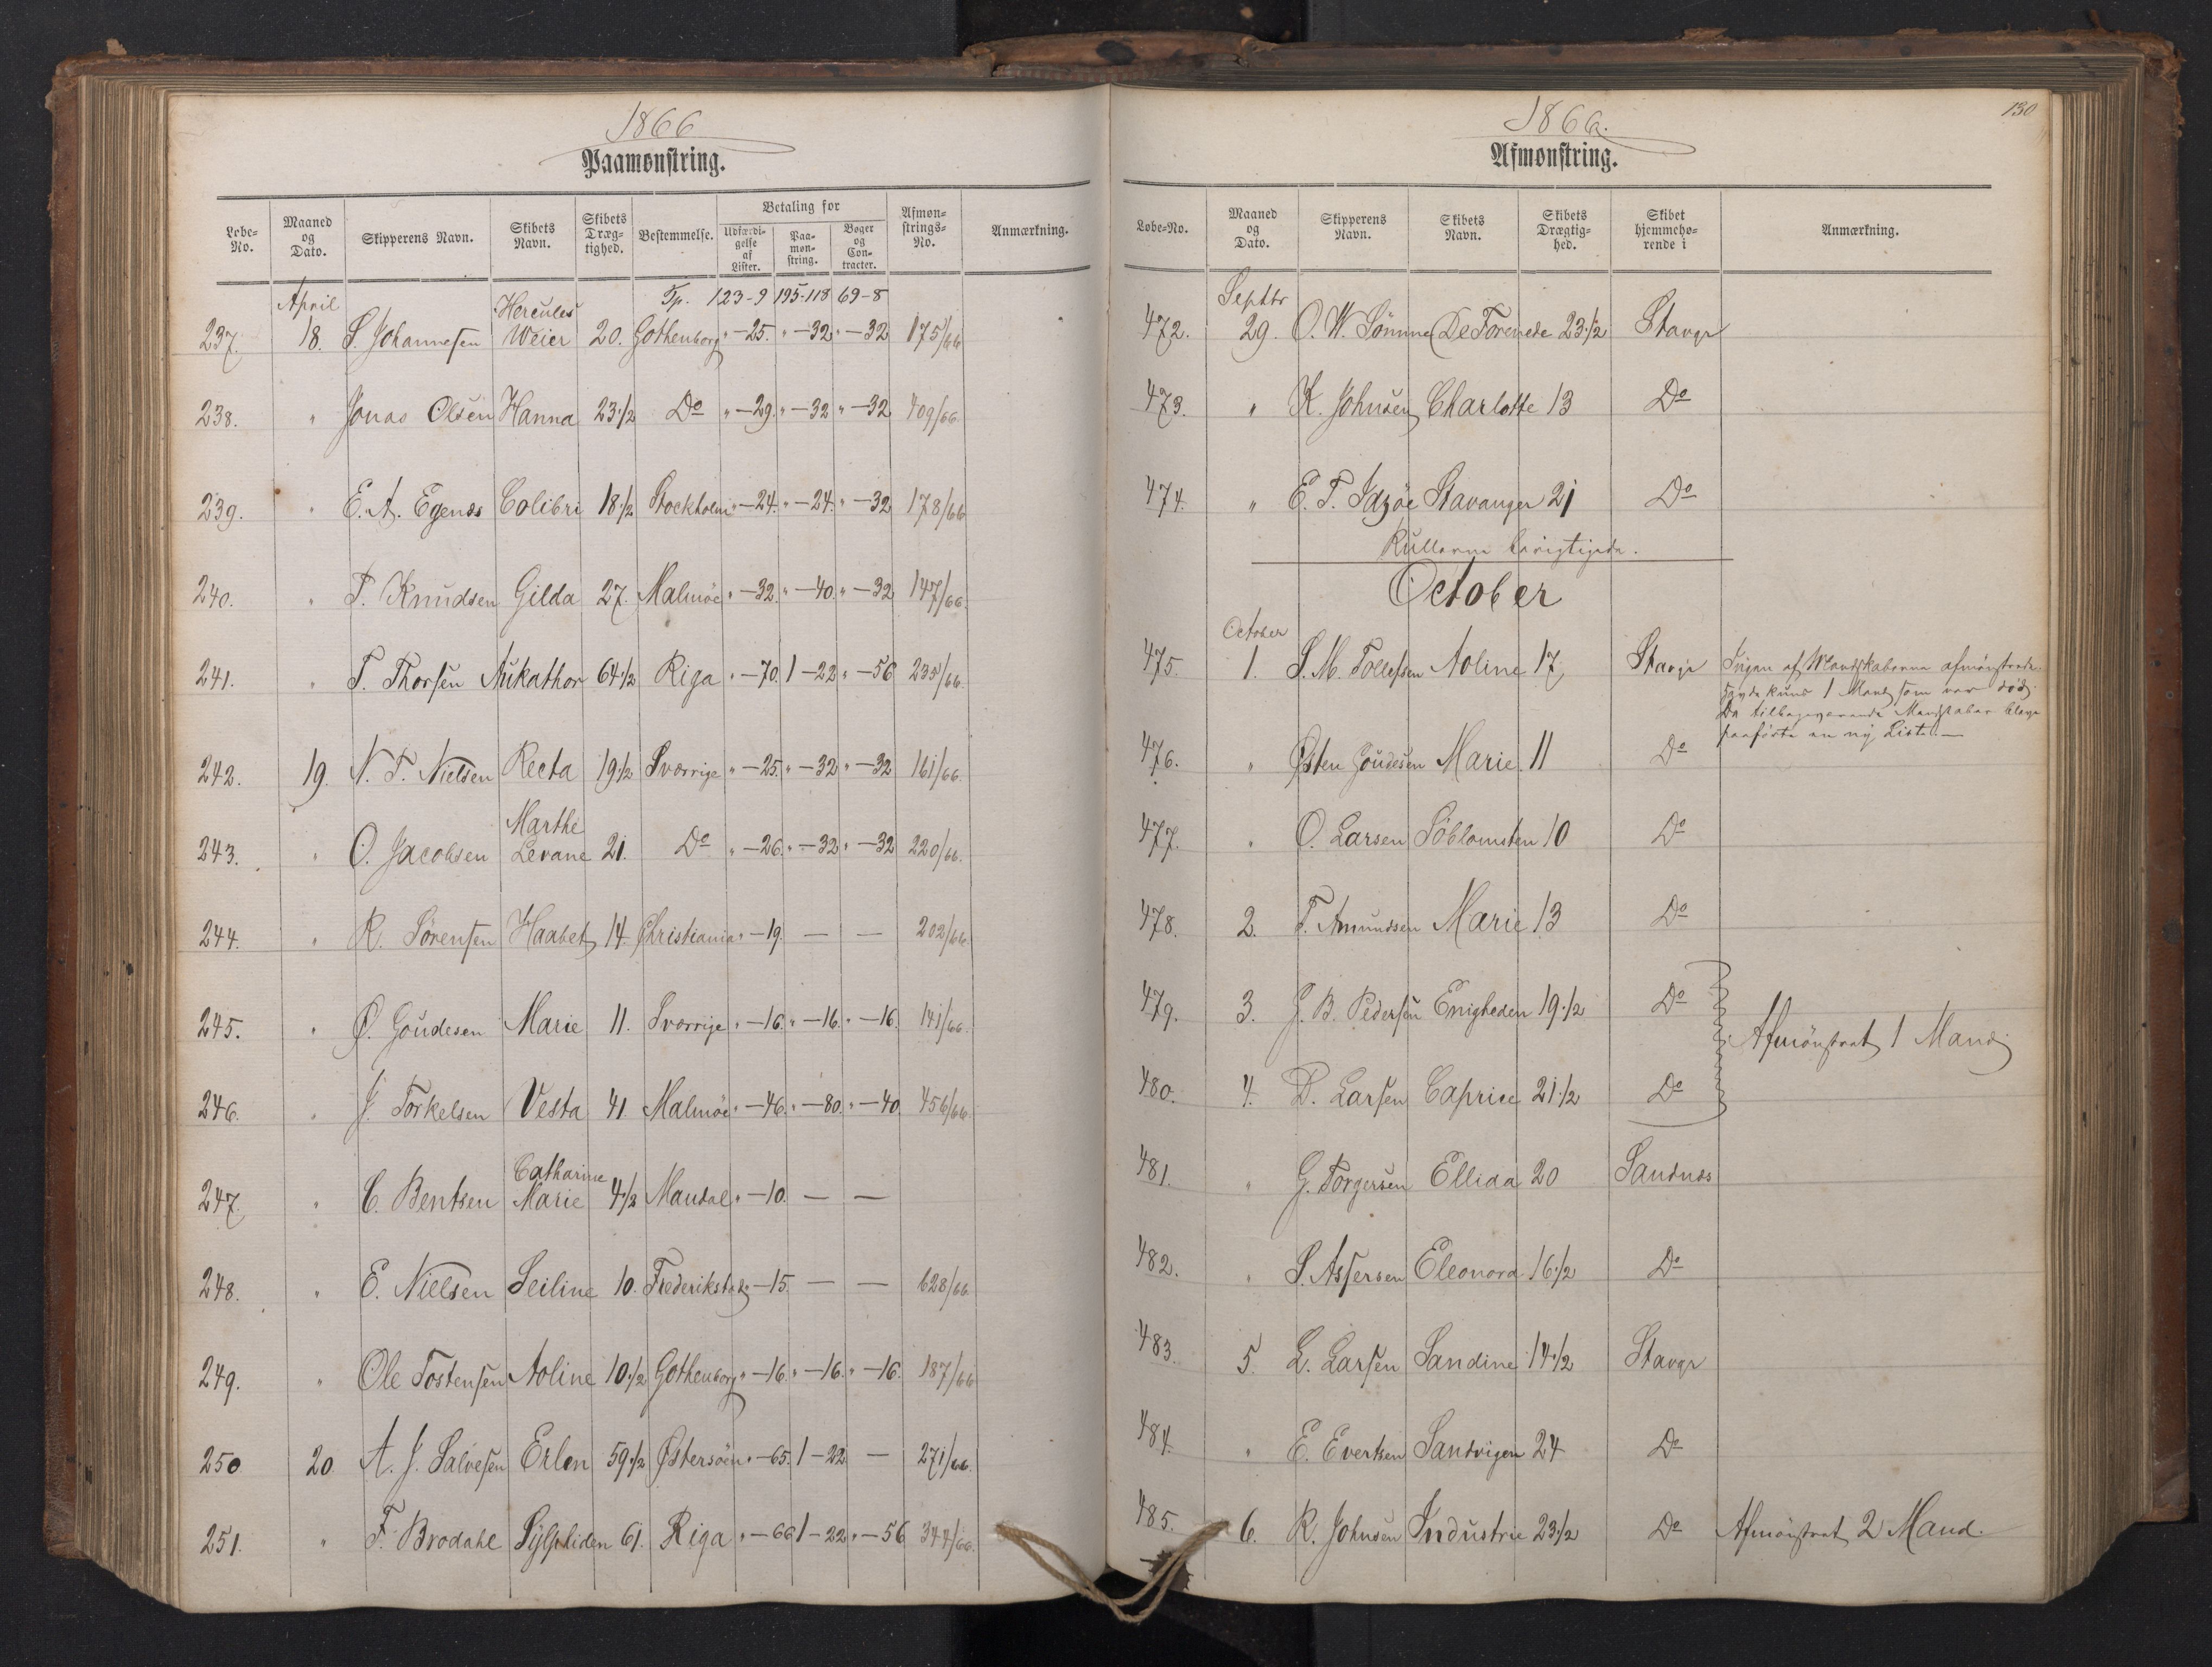 1866
Paamønstring.
Løbe-No. Maaned og Dato. Skipperens Navn. Skibets Navn. Skibets Dræg-tighed. Bestemmelse. Betaling for Udfærdi-gelse af Lister. Paa-møn-string. Bøger og Con-tracter. Afmøn-strings-No. Anmærkning.
April Tp. 123-9 195-118 69-8
237. 18. S. Johannesen Hercules Weier 20. Gothenborg " -25. " -32 " -32 175/66
238. " Jonas Olsen Hanna 23 1/2 Do " -29. " -32 " -32 409/66.
239. " E. A. Egenes Colibri 18 1/2 Stockholm " -24. " -24. " -32 178/66
240. " T. Knudsen Gilda 27. Malmöe " -32. " -40. " -32 147/66.
241. " T. Thorsen Aukathor 64 1/2 Riga " -70. 1 -22 " -56 235/66.
242. 19. N. T. Nielsen Recta 19 1/2 Sverrige " -25. " -32 " -32 161/66.
243. " O. Jacobsen Marthe Levane 21. Do " -26. " -32 " -32 220/66.
244. " R. Sørensen Haabet 14. Christiania " -19. — — 202/66.
245. " Ø. Goudesen Marie 11. Sverrige " -16. " -16. " -16. 141/66.
246. " J. Torkelsen Vesta 41. Malmöe " -46. " -80. " -40 456/66.
247. " C. Bentsen Catharine Marie 4 1/2 Mandal " -10. — —
248. " E. Nielsen Seiline 10. Frederikstad " -15. — — 628/66.
249. " Ole Tostensen Aoline 10 1/2 Gothenborg " -16. " -16. " -16. 187/66
250 20 A. J. Salvesen Erlen 59 1/2 Østersöen " -65. 1 -22 — 271/66.
251. " F. Brodahl Sylphiden 61. Riga " -66 1 -22 " -56 344/66.
1866.
130
Afmønstring.
Løbe-No. Maaned og Dato. Skipperens Navn. Skibets Navn. Skibets Drægtig-hed. Skibet hjemmehø-rende i Anmærkning.
Septbr
472. 29. O. W. Sömme De Forenede 23 1/2 Stavgr
473. " K. Johnsen Charlotte 13 Do
474. " E. T. Idzöe Stavanger 21 Do
Rullerne berigtigede.
October
October
475. 1. S. M. Tollefsen Aoline 17 Stavgr Ingen af Mandskaberne afmönstrede
kuns 1 Mand som var död.
De tilbageværende Mandskaber bleve
paaförte en ny Liste.—
476. " Østen Goudesen Marie 11 Do
477. " O. Larsen Söblomsten 10 Do
478. 2. T. Amundsen Marie 13 Do
479. 3. J. B. Pedersen Enigheden 19 1/2 Do
Afmönstret 1 Mand
480. 4. D. Larsen Caprice 21 1/2 Do
481. " G. Torgersen Ellida 20 Sandnes
482. " S. Assersen Eleonora 16 1/2 Do
483. 5. L. Larsen Sandine 14 1/2 Stavgr
484. " E. Evertsen Sandvigen 24 Do
485. 6. R. Johnsen Industrie 23 1/2 Do Afmönstret 2 Mand.